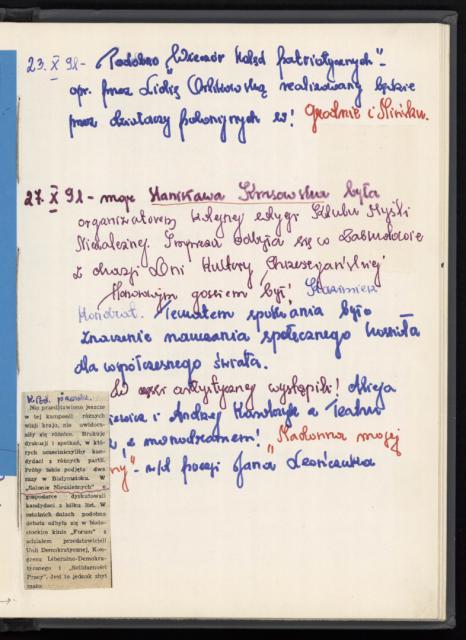 23. X 91 - Podobno "Wieczór kolęd patriotycznych" -
opr. przez Lidię Orlikowską realizowany będzie
przez działaczy polonijnych w! Grodnie i Mińsku.
27. X 91 - mgr Stanisława Krusowska była
organizatorem kolejnej edycji Klubu Myśli
Niezależnej. Impreza odbyła się w Zabłudowie
z okazji Dni Kultury Chrześcijańskiej
Honorowym gościem był! Kazimierz
Kondrat. Tematem spotkania było
znaczenie nauczania społecznego kościoła
dla współczesnego świata.
W części artystycznej wystąpili! Alicja
i Andrzej z Teatru
z monodramem! "Madonna mojej
ny" - wg poezji Jana Leończuka
Nie przedstawiono jeszcze
w tej kampanii różnych
wizji kraju, nie uwidocz-
niły się różnice. Brakuje
dyskusji i spotkań, w któ-
rych uczestniczyliby kan-
dydaci z różnych partii.
Próby takie podjęto dwa
razy w Białymstoku. W
„Salonie Niezależnych" u
gospodarce dyskutowali
kandydaci z kilku list. W
ostatnich dniach podobna
debata odbyła się w biało-
stockim kinie „Forum" z
udziałem przedstawicieli
Unii Demokratycznej, Kon-
gresu Liberalno-Demokra-
tycznego i „Solidarności
Pracy". Jest to jednak zbyt
mało.